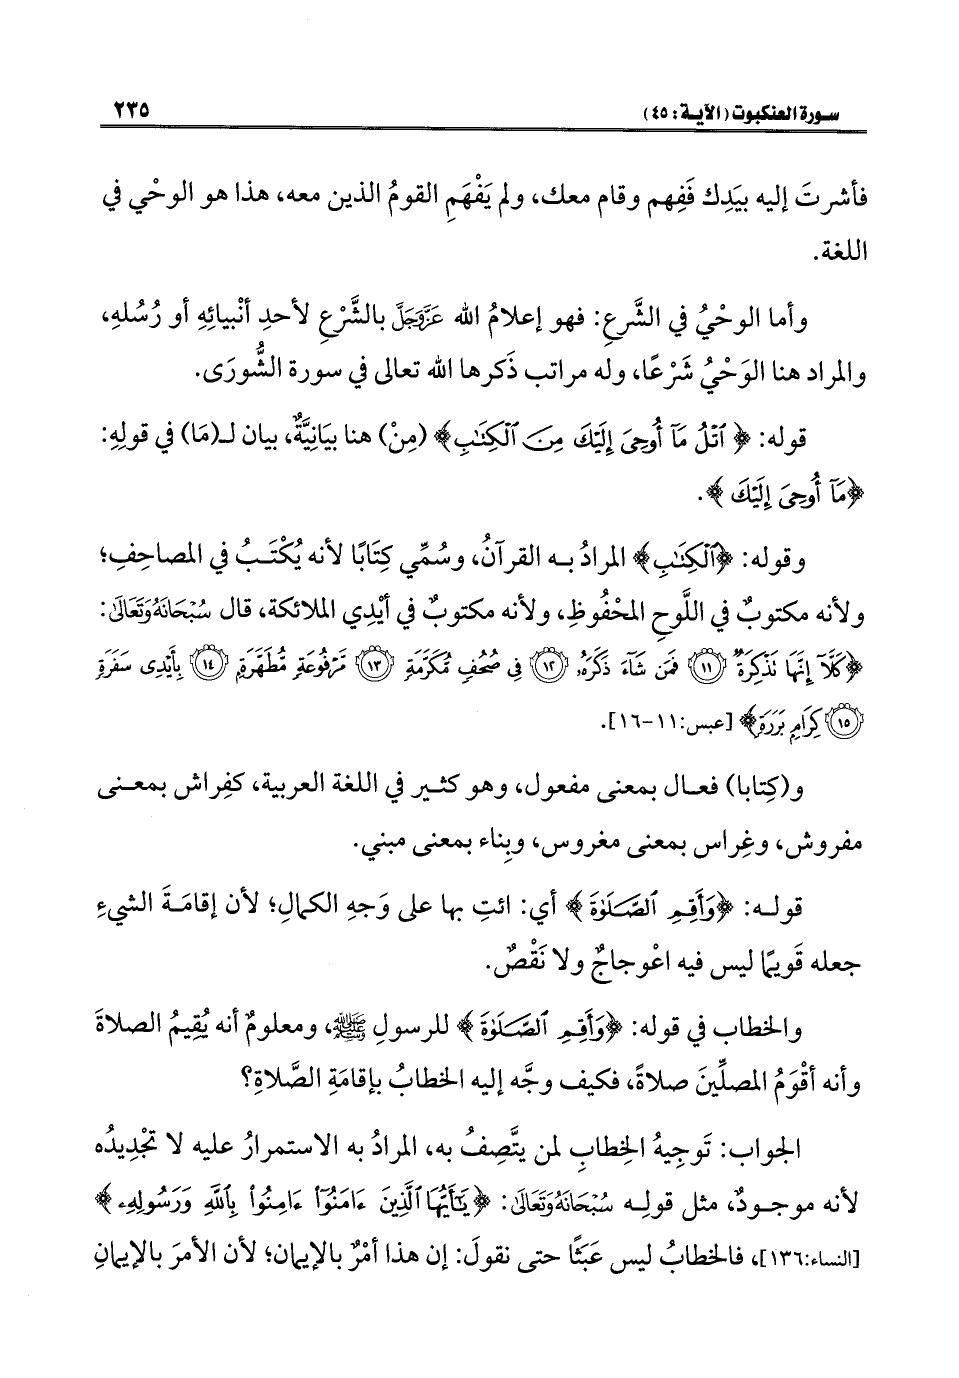 سورة العنكبوت (الآية: ٤٥) ٢٣٥
فأشرتَ إليه بيَدِك فَفِهم وقام معك، ولم يَفْهَمِ القومُ الذين معه، هذا هو الوحْي في
اللغة.
وأما الوحْيُ في الشَّرعِ: فهو إعلامُ الله عَزَّوَجَلَّ بالشَّرْعِ لأحدِ أنْبيائِهِ أو رُسُلهِ،
والمراد هنا الوَحْيُ شَرْعًا، وله مراتب ذَكرها الله تعالى في سورة الشُّورَى.
قوله: ﴿ ٱتْلُ مَآ أُوحِىَ إِلَيْكَ مِنَ ٱلْكِتَٰبِ﴾ (مِنْ) هنا بيَانِيَّةٌ، بيان لـ(مَا) في قولِهِ:
﴿مَآ أُوحِىَ إِلَيْكَ ﴾.
وقوله: ﴿ٱلْكِتَٰبِ﴾ المرادُ به القرآنُ، وسُمِّي كِتَابًا لأنه يُكْتَبُ في المصاحِفِ؛
ولأنه مكتوبٌ في اللَّوحِ المحْفُوظِ، ولأنه مكتوبٌ في أيْدِي الملائكة، قال سُبْحَانَهُ وَتَعَالَىٰ:
﴿كَلَّآ إِنَّهَا تَذْكِرَةٌ ⑪ فَمَن شَآءَ ذَكَرَهُۥ ⑫ فِى صُحُفٍ مُّكَرَّمَةٍ ⑬ مَّرْفُوعَةٍ مُّطَهَّرَةٍۭ ⑭ بِأَيْدِى سَفَرَةٍ
⑮ كِرَامٍۭ بَرَرَةٍ﴾ [عبس: ١١-١٦].
و(كِتابا) فعال بمعنى مفعول، وهو كثير في اللغة العربية، كفِراش بمعنى
مفروش، وغِراس بمعنى مغروس، وبِناء بمعنى مبني.
قوله: ﴿وَأَقِمِ ٱلصَّلَوٰةَ ﴾ أي: ائتِ بها على وَجهِ الكمالِ؛ لأن إقامَةَ الشيءِ
جعله قَويمًا ليس فيه اعْوجاجٌ ولا نَقْصٌ.
والخطاب في قوله: ﴿وَأَقِمِ ٱلصَّلَوٰةَ ﴾ للرسولِ ﷺ، ومعلومٌ أنه يُقِيمُ الصلاةَ
وأنه أقْوَمُ المصلِّينَ صلاةً، فكيف وجَّه إليه الخطابُ بإقامَةِ الصَّلاةِ؟
الجواب: تَوجِيهُ الخِطابِ لمن يتَّصِفُ به، المرادُ به الاستمرارُ عليه لا تجْدِيدُه
لأنه موجودٌ، مثل قولِه سُبْحَانَهُ وَتَعَالَىٰ: ﴿يَٰٓأَيُّهَا ٱلَّذِينَ ءَامَنُوٓا۟ ءَامِنُوا۟ بِٱللَّهِ وَرَسُولِهِۦ ﴾
[النساء: ١٣٦]، فالخطابُ ليس عَبَثًا حتى نقولَ: إن هذا أمْرٌ بالإيمان؛ لأن الأمرَ بالإيمانِ